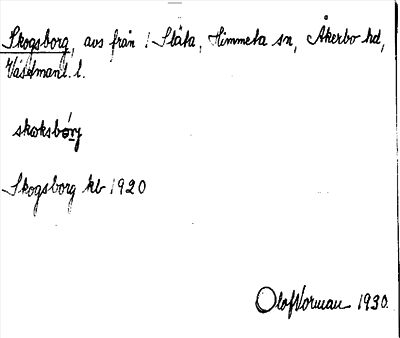 Skogsborg, avs från 1 Slåta, Himmeta sn, Åkerbo hd,
Västmanl. l.
skoksbórj
Skogsborg kb 1920
Olof Norman 1930.